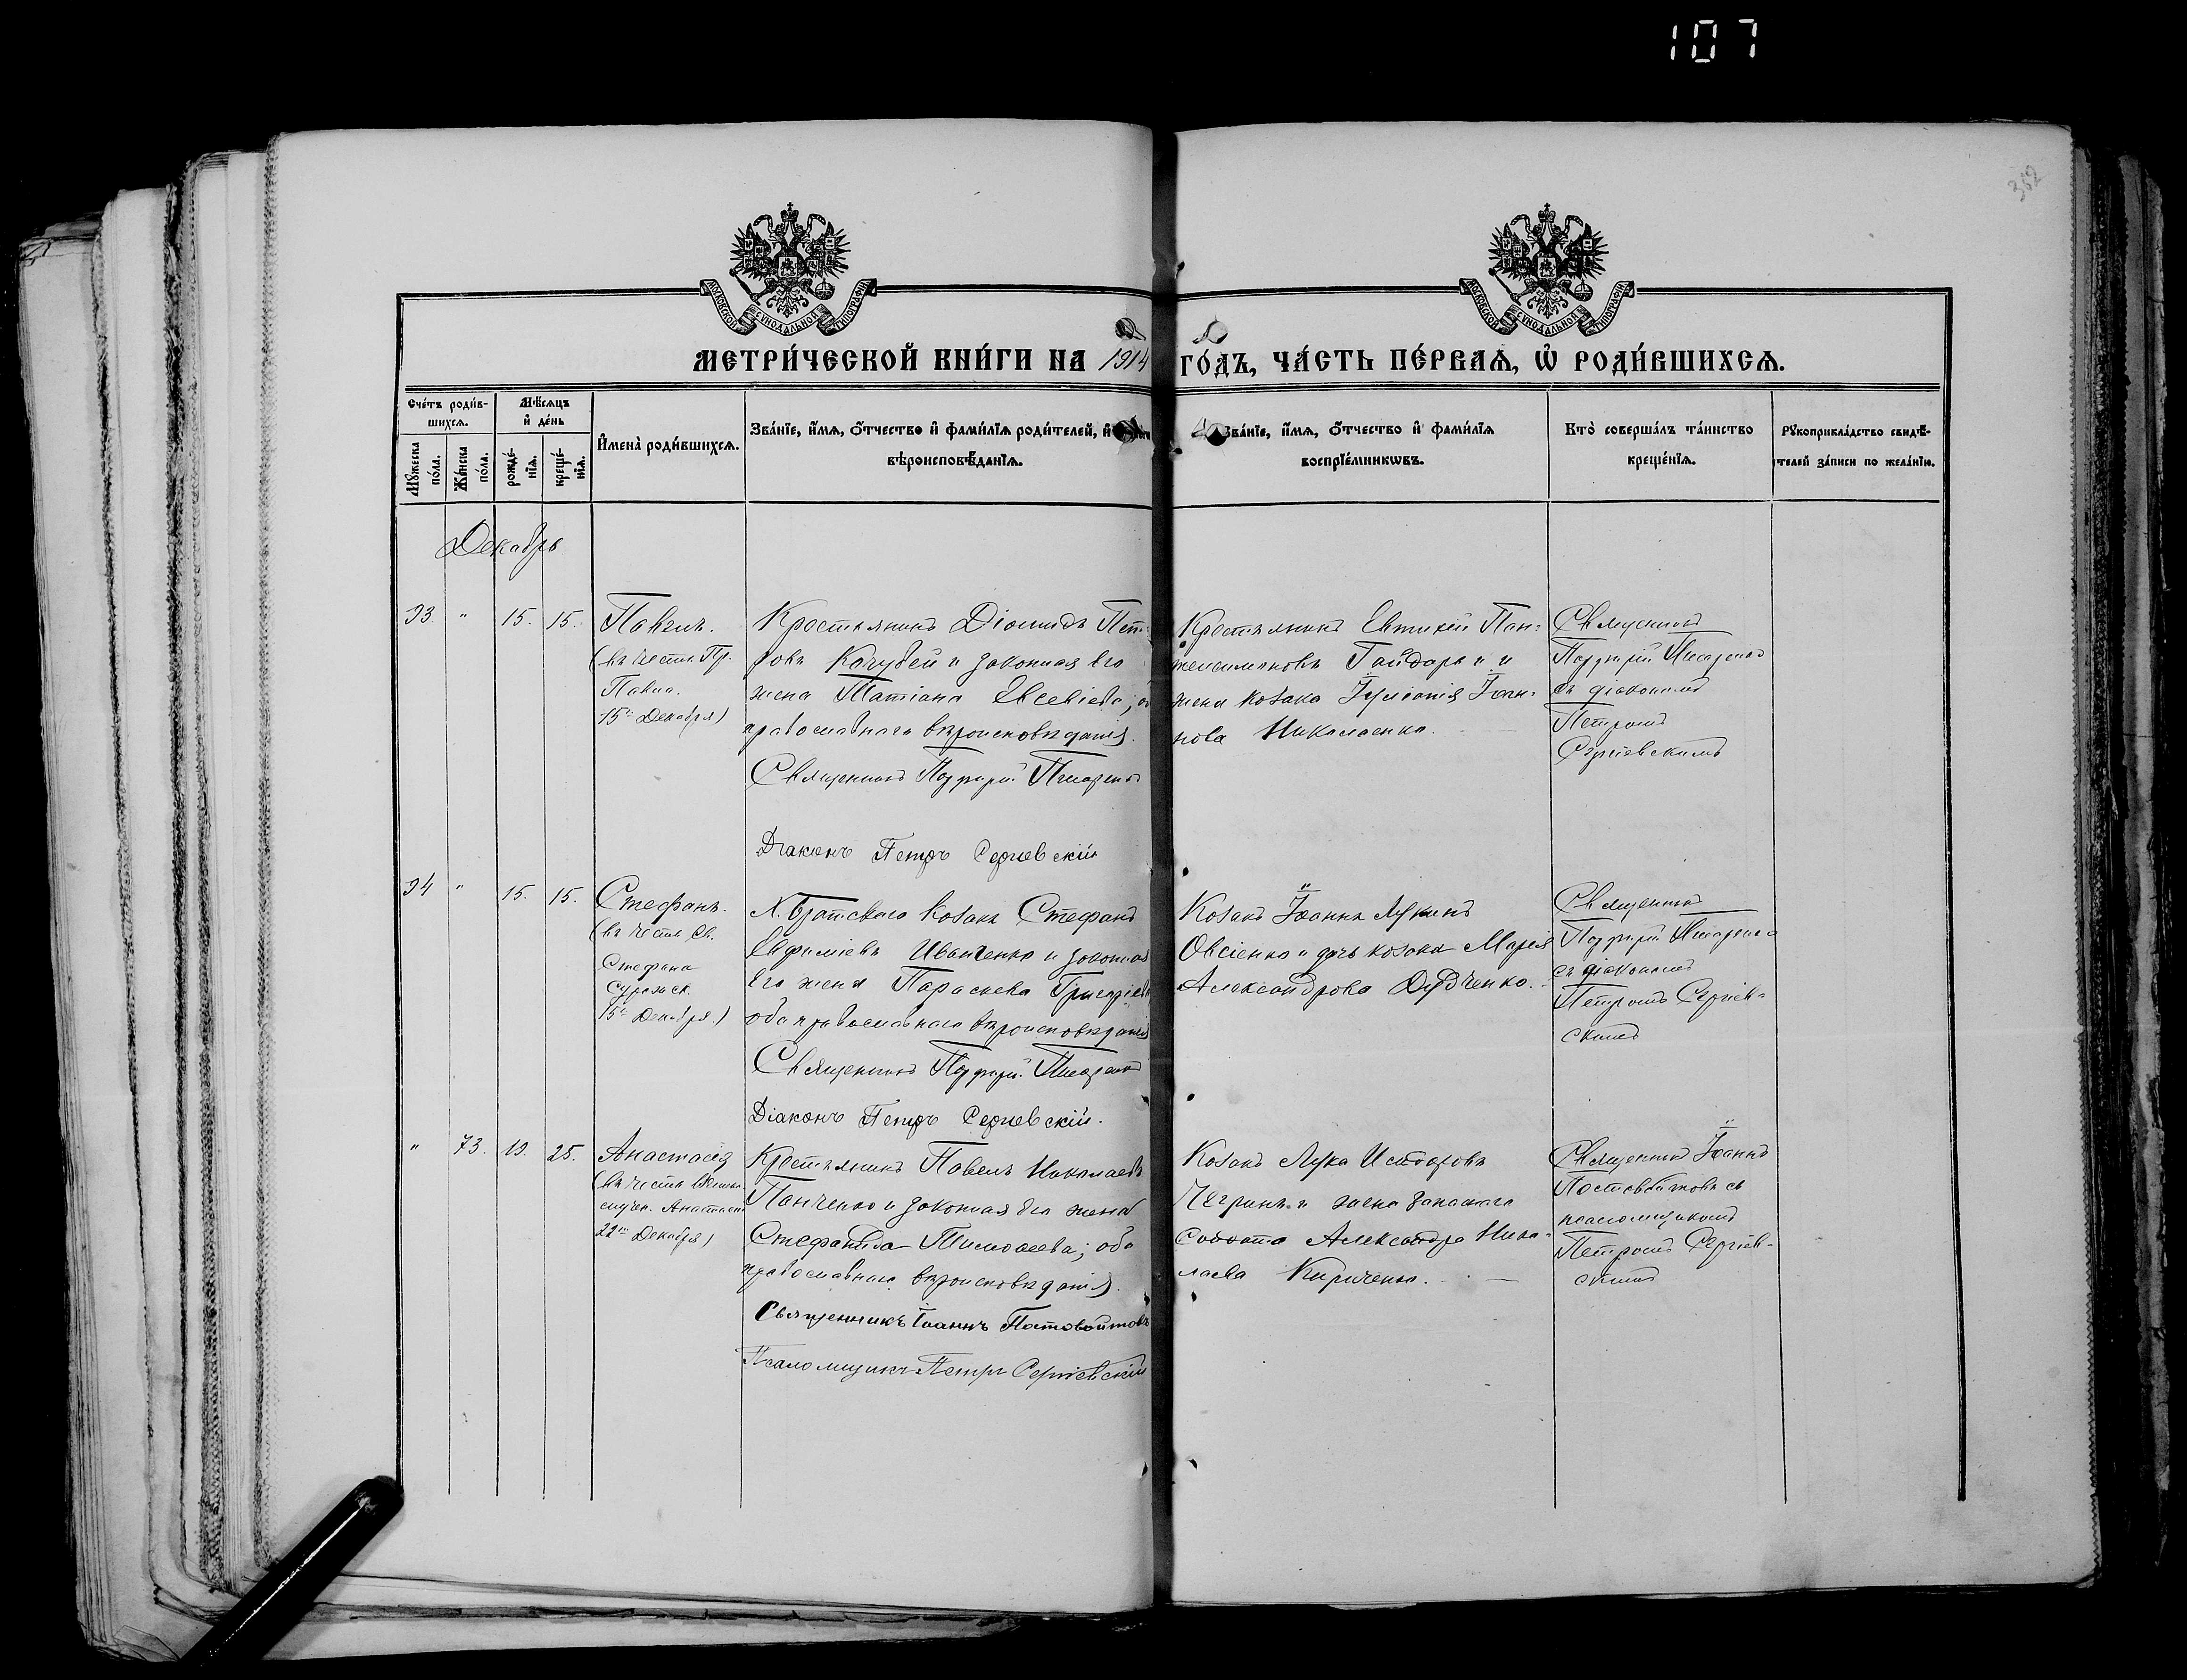 107
362
МОСКОВСКОЙ СѴНОДАЛЬНОЙ ТИПОГРАФІИ
МОСКОВСКОЙ СѴНОДАЛЬНОЙ ТИПОГРАФІИ
МЕТРИ́ЧЕСКОЙ КНИ́ГИ НА 1914 ГО́ДЪ, ЧА́СТЬ ПЕ́РВАѦ, Ѡ҆ РОДИ́ВШИХСѦ.
Сче́тъ роди́в-
шихсѧ.
Мѣ́сѧцъ
и҆ де́нь
Мꙋ́жеска по́ла.
Же́нска по́ла.
рожде́-
нїѧ.
креще́-
нїѧ.
И҆мена̀ роди́вшихсѧ.
Зва́нїе, и҆́мѧ, ѻ҆́тчество и҆ фами́лїѧ роди́телей, и҆
вѣроисповѣ́данїѧ.
Зва́нїе, и҆́мѧ, ѻ҆́тчество и҆ фами́лїѧ
воспрїе́мникѡвъ.
Кто̀ соверша́лъ та́инство
креще́нїѧ.
Рꙋкоприкла́дство свидѣ́-
телей за́писи по жела́нїю.
Декабрь
93. " 15. 15.
Павелъ.
(въ честь Пр.
Павла.
15го Декабря)
Крестьянинъ Діомидъ Пет-
ровъ Кочубей и законная его
жена Татіана Евсевіева; об
православнаго вѣроисповѣданія.
Священникъ Порфирій Писаренко
Діаконъ Петръ Сергіевскій
Крестьянинъ Евтихій Пан-
телеимоновъ Гайдаръ и
жена козака Іуліанія Іоан-
нова Николаенко.
Священникъ
Порфирій Писаренко
съ діакономъ
Петромъ
Сергіевскимъ
94 " 15. 15.
Стефанъ.
(въ честь Св.
Стефана
Сурожск.
15го Декабря.)
Х. Братскаго козакъ Стефанъ
Евфиміевъ Иванченко и законная
его жена Параскева Григоріева
оба православнаго вѣроисповѣданія
Священникъ Порфирій Писаренко
Діаконъ Петръ Сергіевскій.
Козакъ Іоаннъ Лукинъ
Овсіенко и дочь козака Марія
Александрова Дудченко.
Священникъ
Порфирій Писаренко
съ діакономъ
Петромъ Сергіев-
скимъ
" 73. 19. 25.
Анастасія
(въ честь Велик.
мучен. Анастасіи
22го Декабря)
Крестьянинъ Павелъ Николаевъ
Панченко и законная его жена
Стефанида Тимоѳеева; оба
православнаго вѣроисповѣданія.
Священникъ Іоаннъ Постовойтовъ
Псаломщикъ Петръ Сергіевскій
Козакъ Лука Исидоровъ
Чегринъ и жена запаснаго
солдата Александра Нико-
лаева Кириченко.
Священникъ Іоаннъ
Постовойтовъ съ
псаломщикомъ
Петромъ Сергіев-
скимъ